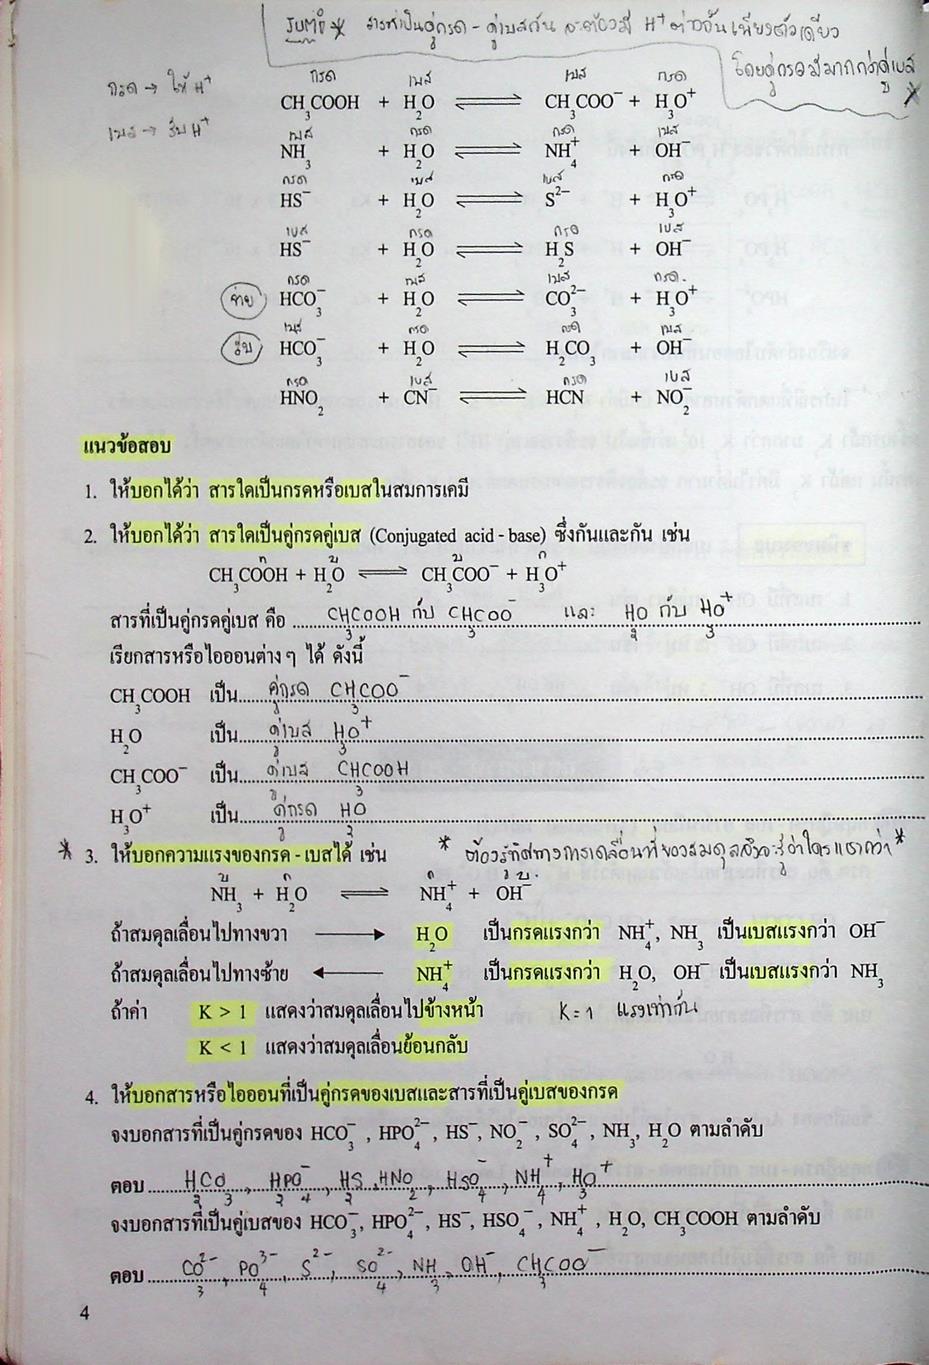 สารที่เป็นคู่กรด - คู่เบสกัน จะต้องมี H⁺ ต่างกันเพียงตัวเดียว
โดยคู่กรดมีมากกว่าคู่เบส
กรด → ให้ H⁺
เบส → รับ H⁺
กรด เบส เบส กรด
CH₃COOH + H₂O ⇌ CH₃COO⁻ + H₃O⁺
เบส กรด กรด เบส
NH₃ + H₂O ⇌ NH₄⁺ + OH⁻
กรด เบส เบส กรด
HS⁻ + H₂O ⇌ S²⁻ + H₃O⁺
เบส กรด กรด เบส
HS⁻ + H₂O ⇌ H₂S + OH⁻
กรด เบส เบส กรด
จ่าย HCO₃⁻ + H₂O ⇌ CO₃²⁻ + H₃O⁺
เบส กรด กรด เบส
รับ HCO₃⁻ + H₂O ⇌ H₂CO₃ + OH⁻
กรด เบส กรด เบส
HNO₂ + CN⁻ ⇌ HCN + NO₂⁻
แนวข้อสอบ
1. ให้บอกได้ว่า สารใดเป็นกรดหรือเบสในสมการเคมี
2. ให้บอกได้ว่า สารใดเป็นคู่กรดคู่เบส (Conjugated acid - base) ซึ่งกันและกัน เช่น
ก บ บ ก
CH₃COOH + H₂O ⇌ CH₃COO⁻ + H₃O⁺
สารที่เป็นคู่กรดคู่เบส คือ CH₃COOH กับ CH₃COO⁻ และ H₂O กับ H₃O⁺
เรียกสารหรือไอออนต่าง ๆ ได้ ดังนี้
CH₃COOH เป็น คู่กรด CH₃COO⁻
H₂O เป็น คู่เบส H₃O⁺
CH₃COO⁻ เป็น คู่เบส CH₃COOH
H₃O⁺ เป็น คู่กรด H₂O
* 3. ให้บอกความแรงของกรด - เบสได้ เช่น * ต้องรู้ทิศทางการเคลื่อนที่ของสมดุลถึงจะรู้ว่าใครแรงกว่า *
บ ก ก บ
NH₃ + H₂O ⇌ NH₄⁺ + OH⁻
ถ้าสมดุลเลื่อนไปทางขวา → H₂O เป็นกรดแรงกว่า NH₄⁺, NH₃ เป็นเบสแรงกว่า OH⁻
ถ้าสมดุลเลื่อนไปทางซ้าย ← NH₄⁺ เป็นกรดแรงกว่า H₂O, OH⁻ เป็นเบสแรงกว่า NH₃
ถ้าค่า K > 1 แสดงว่าสมดุลเลื่อนไปข้างหน้า K = 1 แรงเท่ากัน
K < 1 แสดงว่าสมดุลเลื่อนย้อนกลับ
4. ให้บอกสารหรือไอออนที่เป็นคู่กรดของเบสและสารที่เป็นคู่เบสของกรด
จงบอกสารที่เป็นคู่กรดของ HCO₃⁻, HPO₄²⁻, HS⁻, NO₂⁻, SO₄²⁻, NH₃, H₂O ตามลำดับ
ตอบ H₂CO₃, H₂PO₄⁻, H₂S, HNO₂, HSO₄⁻, NH₄⁺, H₃O⁺
จงบอกสารที่เป็นคู่เบสของ HCO₃⁻, HPO₄²⁻, HS⁻, HSO₄⁻, NH₄⁺, H₂O, CH₃COOH ตามลำดับ
ตอบ CO₃²⁻, PO₄³⁻, S²⁻, SO₄²⁻, NH₃, OH⁻, CH₃COO⁻
4